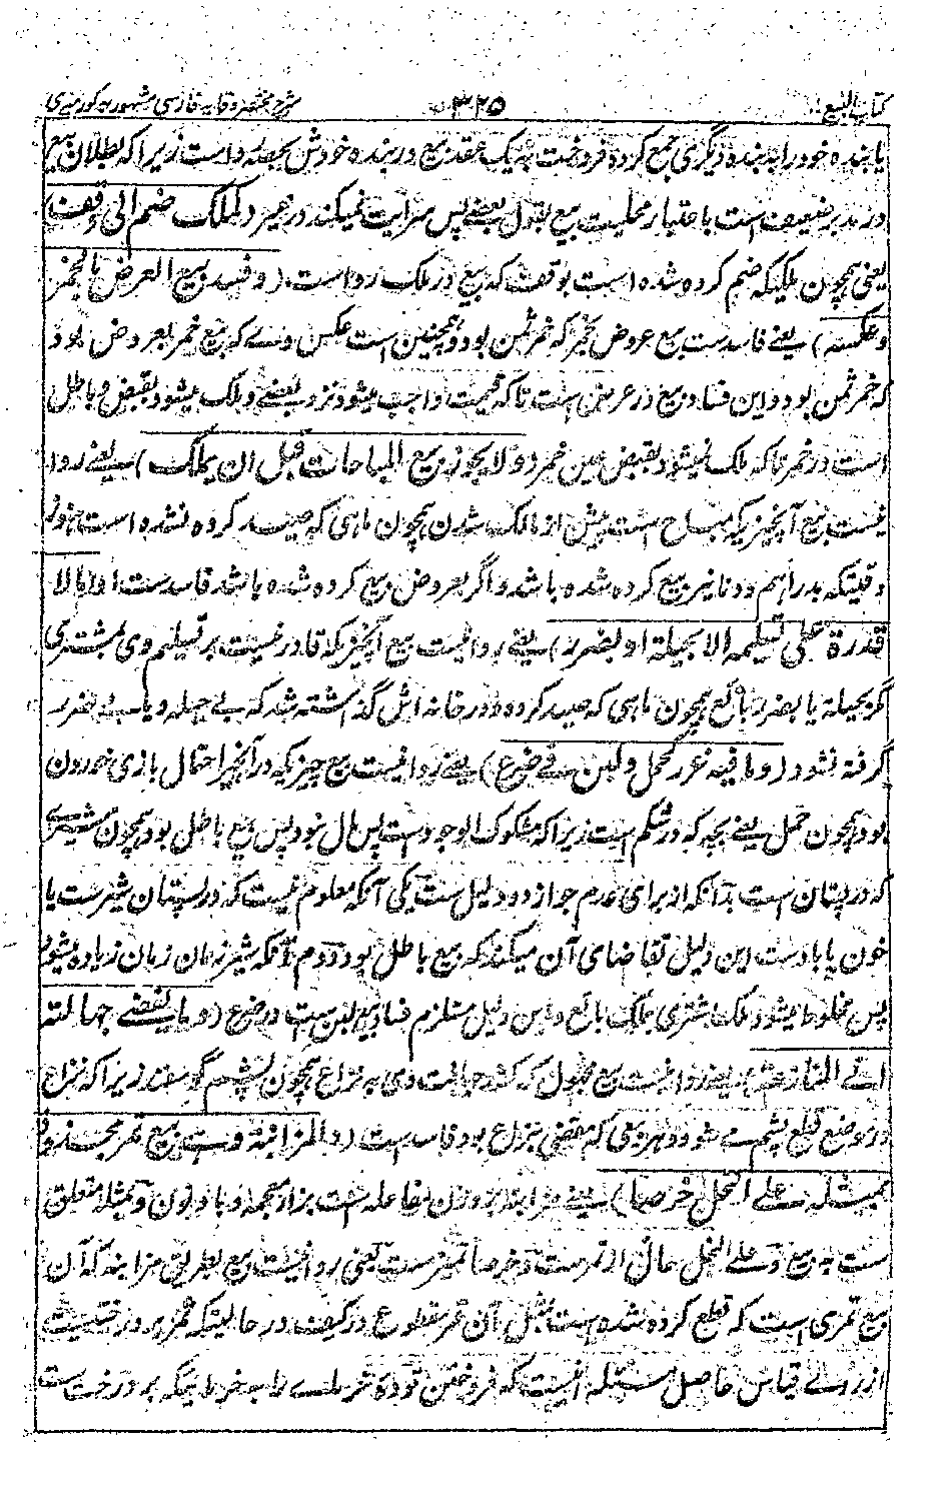 کتاب البیع ۳۲۵ شرح مختصر وقایه فارسی مشهور به کور میری
یا بنده خود را به بنده دیگری جمع کرده فروخت به یک عقد بیع در بنده خودش بحصه رواست زیرا که بطلان بیع
در مدبر ضعیف است باعتبار محلیت بیع بقول بعضے پس سرایت نمیکند در غیر (کملک ضم الی وقف)
یعنی همچون ملکیکه ضم کرده شده است بوقف که بیع در ملک رواست. (وفسد بیع العرض بالخمر
وعکسه) یعنے فاسدست بیع عروض بخمر که خمر ثمن بود و همچنین است عکس وے که بیع خمر بعروض بود
که خمر ثمن بود و این فساد بیع در عرض است تا که قیمت واجب میشود نزد بعضے و ملک میشود بقبض و باطل
است در خمر تا که ملک نمیشود بقبض عین خمر (ولا یجوز بیع المباحات قبل ان یملک) یعنے روا
نیست بیع آنچیزیکه مباح است پیش از مالک شدن همچون ماهی که صید کرده نشده است هنوز
وقتیکه بدراهم و دنانیر بیع کرده شده باشد و اگر بعروض بیع کرده شده باشد فاسدست (وما لا
قدرة علی تسلیمه الا بحیلة او بضرر) یعنے روا نیست بیع آنچیز که قادر نیست بر تسلیم وی بمشتری
مگر بحیله یا بضرر بائع همچون ماهی که صید کرده و در خانه اش گذاشته شد که بے حیله و یا بے ضرر
گرفته نشود (وما فیه غرر کحمل ولبن فی ضرع) یعنے روا نیست بیع چیزیکه در آنچیز احتمال بازی خوردن
بود همچون حمل یعنے بچه که در شکم است زیرا که مشکوک الوجودست پس مال نبود پس بیع باطل بود همچون شیرے
که در پستان است بدانکه از برای عدم جواز دو دلیل ست یکی آنکه معلوم نیست که در پستان شیرست یا
خون یا بادست این دلیل تقاضای آن میکند که بیع باطل بود دوم آنکه شیر زمان زمان زیاده میشود
پس مخلوط میشود ملک مشتری بملک بائع و این دلیل مستلزم فساد بیع لبن ست در ضرع (وما یفضے جهالته
الے المنازعة) یعنے روا نیست بیع مجهول که کشد جهالت وی به نزاع همچون پشم گوسفند زیرا که نزاع
در موضع قطع پشم مے شود و هر بیعی که مفضی بنزاع بود فاسد است (والمزابنة وهی بیع تمر مجذوذ
بمثله علے النخل خرصا) یعنے مزابنه بر وزن مفاعله است بزاء معجمه و باء و نون و بمثله متعلق
ست به بیع و علے النخل حال از تمرست و خرصا تمیزست یعنی روا نیست بیع بطریق مزابنه که آن
بیع تمری است که قطع کرده شده است بمثل آن تمر مقطوع در کیف در حالیکه ثمر بر درختیست
از روے قیاس حاصل مسئله اینست که فروختن توده خرماے را به خرمائیکه بر درخت ست